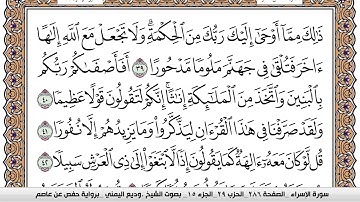 ذَٰلِكَ مِمَّآ أَوْحَىٰٓ إِلَيْكَ رَبُّكَ مِنَ ٱلْحِكْمَةِ ۗ وَلَا تَجْعَلْ مَعَ ٱللَّهِ إِلَٰهًا
ءَاخَرَ فَتُلْقَىٰ فِى جَهَنَّمَ مَلُومًا مَّدْحُورًا ٣٩ أَفَأَصْفَىٰكُمْ رَبُّكُم
بِٱلْبَنِينَ وَٱتَّخَذَ مِنَ ٱلْمَلَٰٓئِكَةِ إِنَٰثًا ۚ إِنَّكُمْ لَتَقُولُونَ قَوْلًا عَظِيمًا ٤٠
وَلَقَدْ صَرَّفْنَا فِى هَٰذَا ٱلْقُرْءَانِ لِيَذَّكَّرُوا۟ وَمَا يَزِيدُهُمْ إِلَّا نُفُورًا ٤١
قُل لَّوْ كَانَ مَعَهُۥٓ ءَالِهَةٌ كَمَا يَقُولُونَ إِذًا لَّٱبْتَغَوْا۟ إِلَىٰ ذِى ٱلْعَرْشِ سَبِيلًا ٤٢
سورة الإسراء _ الصفحة ٢٨٦ _ الحزب ٢٩ _ الجزء ١٥ _ بصوت الشيخ : وديع اليمني _ برواية حفص عن عاصم